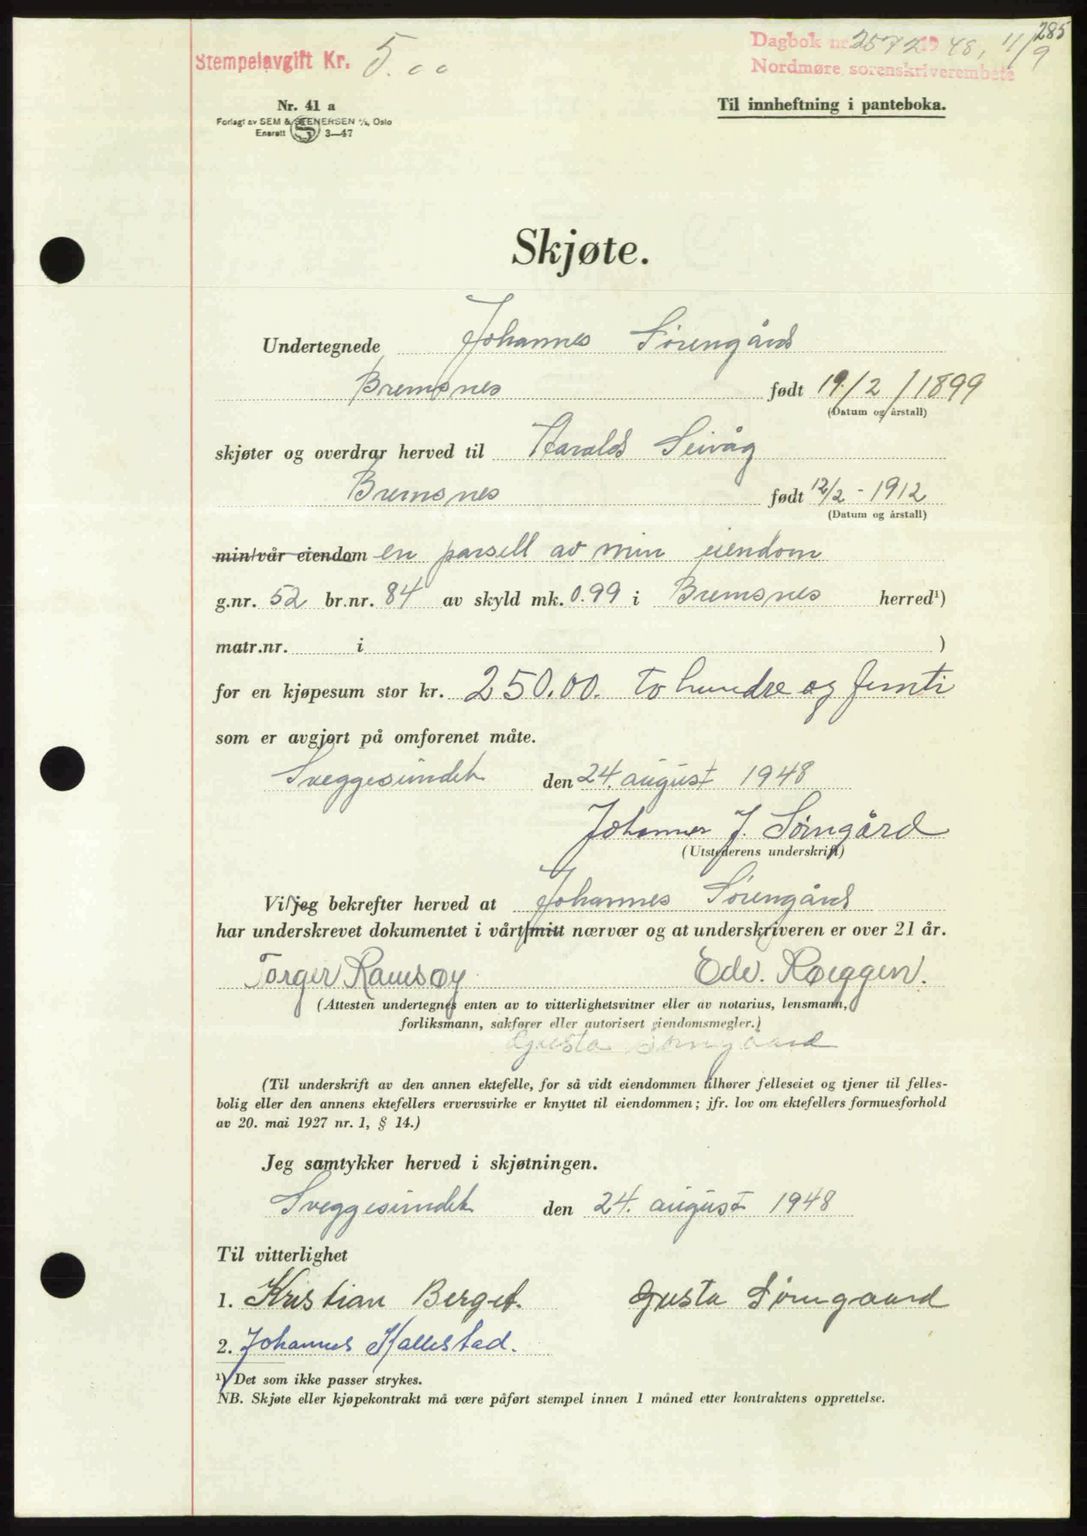 285
Stempelavgift Kr. 5.00
Dagbok nr. 2572 19 48, 11/9
Nordmøre sorenskriverembete
Nr. 41 a
Forlagt av SEM & STENERSEN A/S, Oslo
Enerett S 3—47
Til innheftning i panteboka.
Skjøte.
Undertegnede Johannes Sørengård
Bremsnes født 19./2 / 1899
(Datum og årstall)
skjøter og overdrar herved til Harald Seivåg
Bremsnes født 12/2 - 1912
(Datum og årstall)
min/vår eiendom en parsell av min eiendom
g.nr. 52 br.nr. 84 av skyld mk. 0.99 i Bremsnes herred¹)
matr.nr. i )
for en kjøpesum stor kr. 250.00. to hundre og femti
som er avgjort på omforenet måte.
Sveggesundet den 24. august 1948
Johannes J. Sørngård
(Utstederens underskrift)
Vi/jeg bekrefter herved at Johannes Sørengård
har underskrevet dokumentet i vårt/mitt nærvær og at underskriveren er over 21 år.
Torger Ramsøy Edv. Røeggen.
(Attesten undertegnes enten av to vitterlighetsvitner eller av notarius, lensmann,
forliksmann, sakfører eller autorisert eiendomsmegler.)
Gusta Sørngaard
(Til underskrift av den annen ektefelle, for så vidt eiendommen tilhører felleseiet og tjener til felles-
bolig eller den annens ektefellers ervervsvirke er knyttet til eiendommen; jfr. lov om ektefellers formuesforhold
av 20. mai 1927 nr. 1, § 14.)
Jeg samtykker herved i skjøtningen.
Sveggesundet den 24. august 1948
Til vitterlighet
1. Kristian Berget. Gusta Sørngaard
2. Johannes Kallestad.
¹) Det som ikke passer strykes.
NB. Skjøte eller kjøpekontrakt må være påført stempel innen 1 måned etter kontraktens opprettelse.